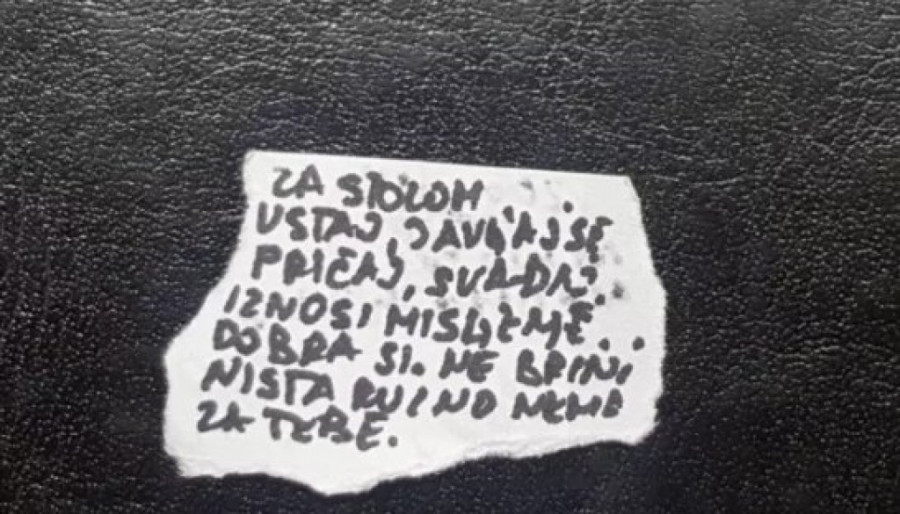 ZA STOLOM.
USTAJ, JAVLJAJ SE
PRIČAJ, SVAĐAJ.
IZNOSI MIŠLJENJE.
DOBRA SI. NE BRINI,
NIŠTA RUŽNO NEMA
ZA TEBE.